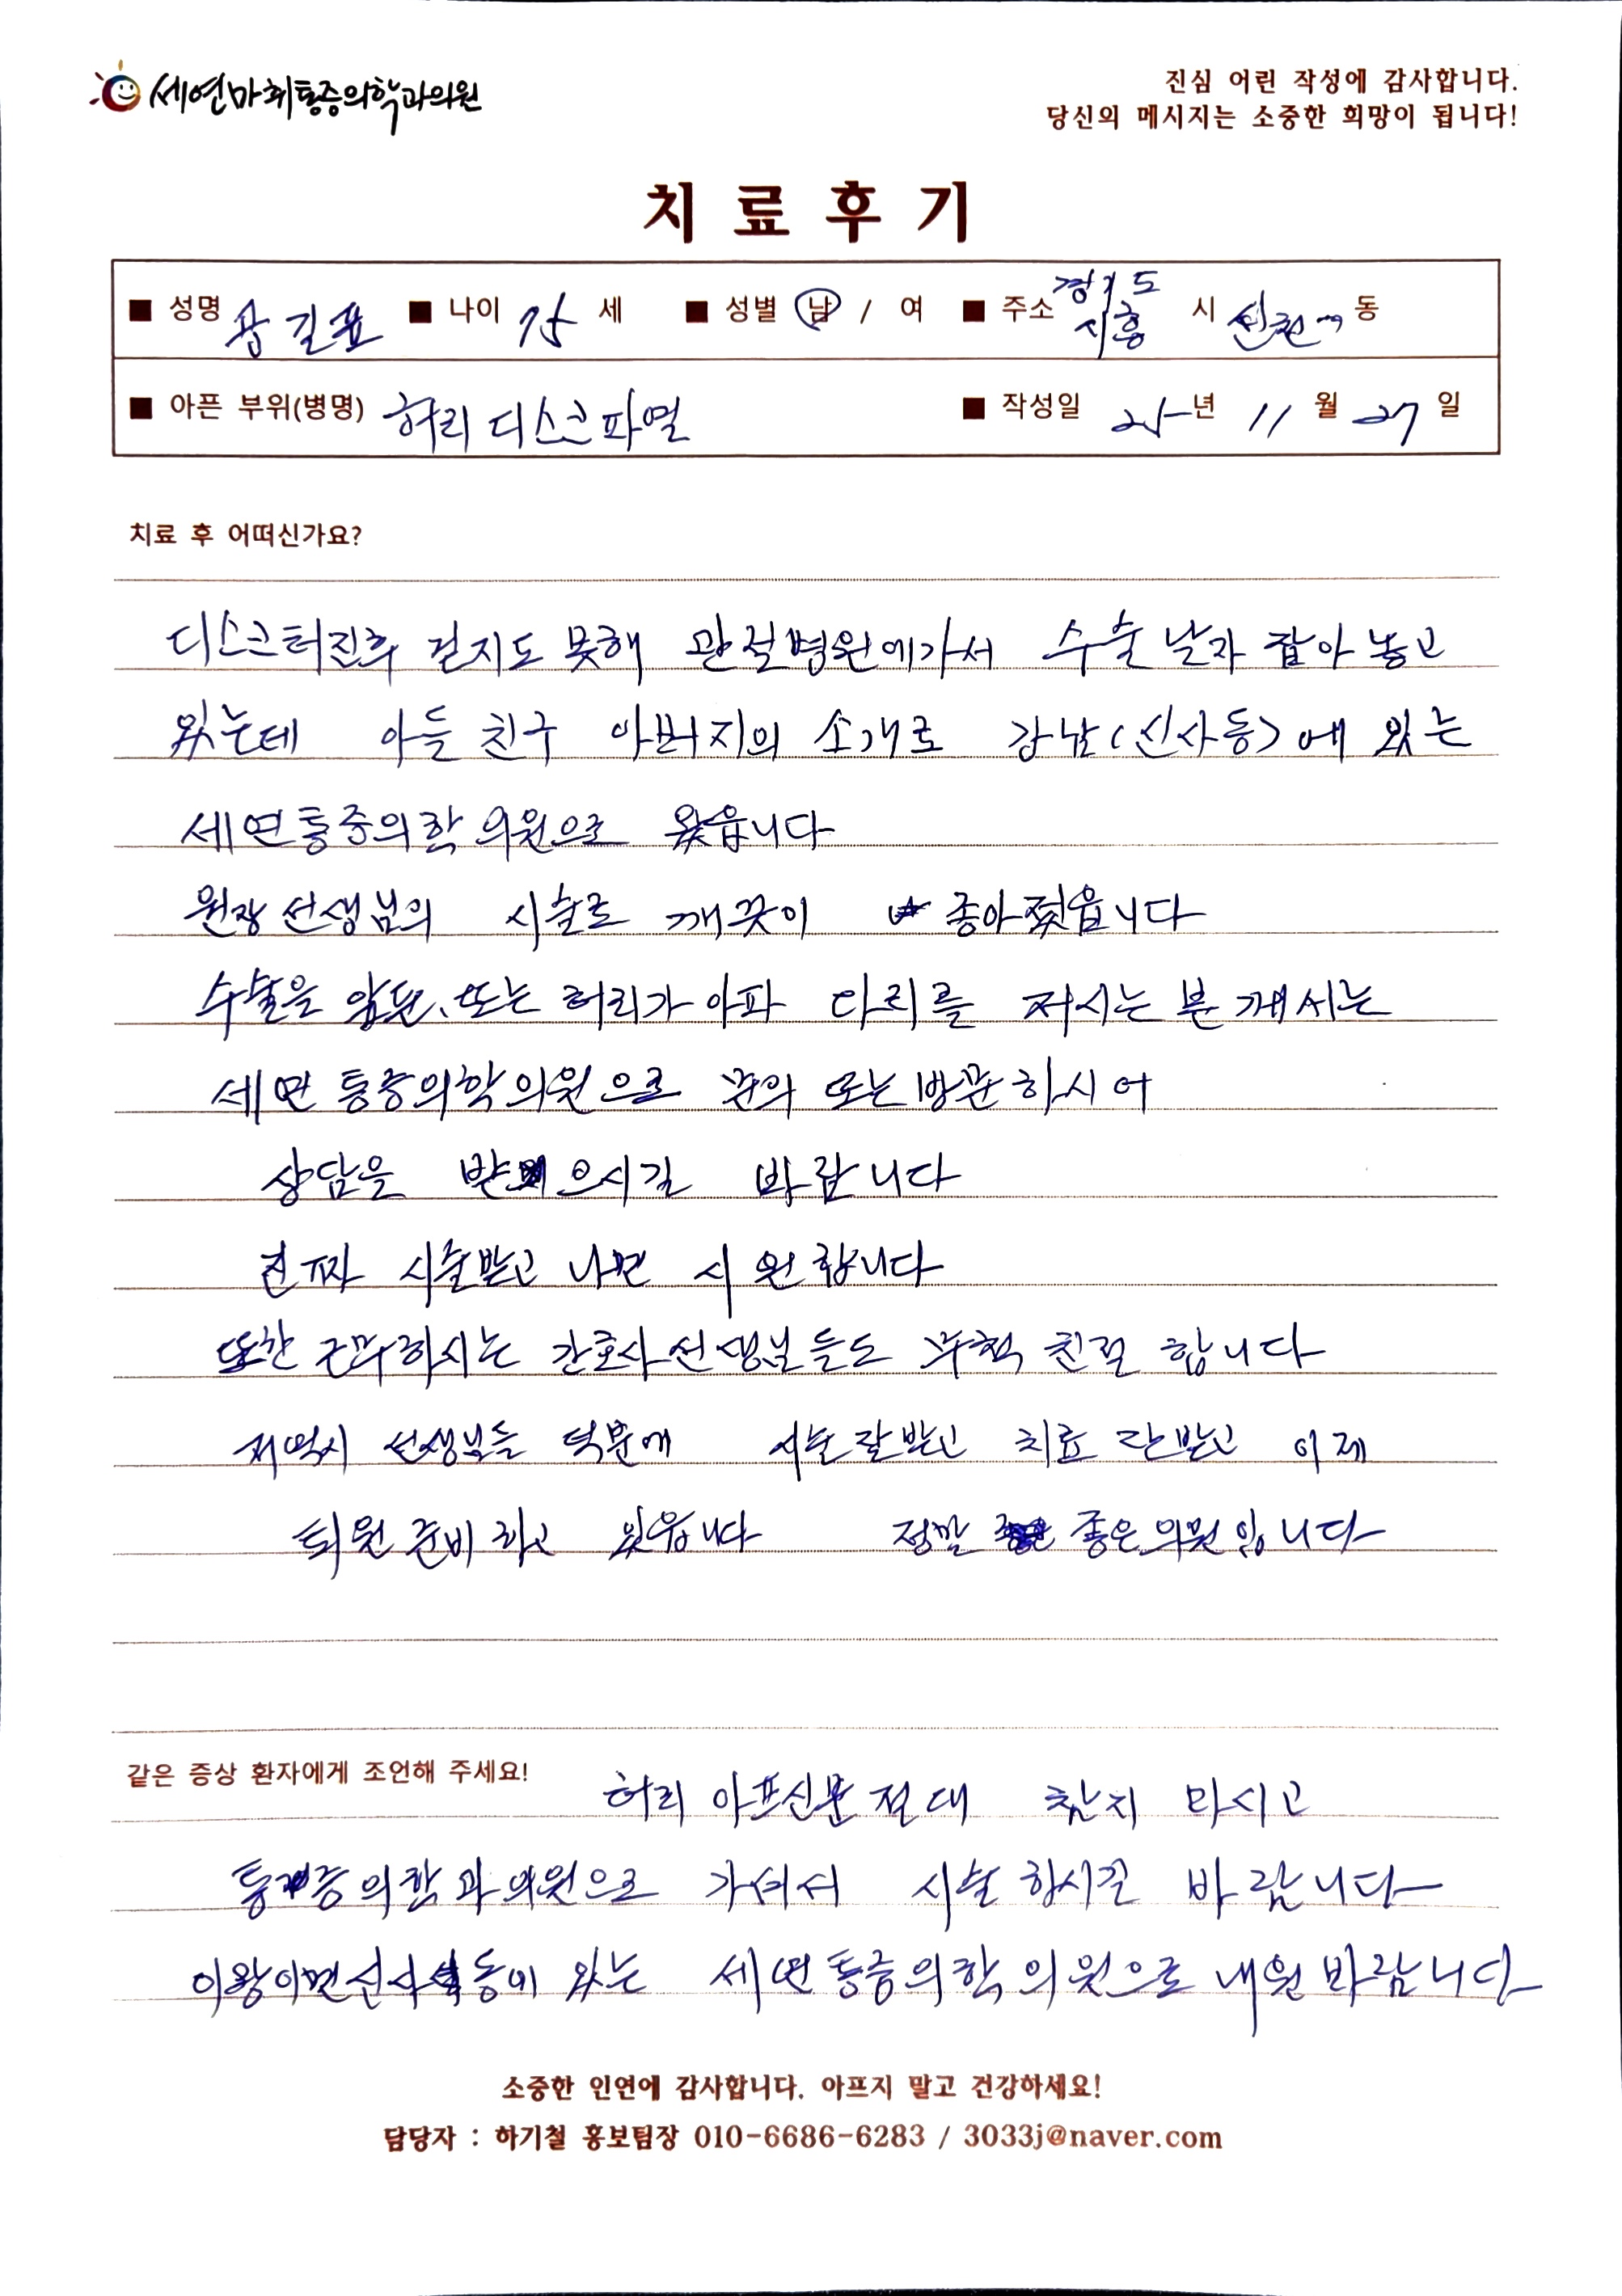 세연마취통증의학과의원
진심 어린 작성에 감사합니다.
당신의 메시지는 소중한 희망이 됩니다!
치료후기
■ 성명 길표 ■ 나이 75 세 ■ 성별 남 / 여 ■ 주소 경기도 시흥 시 신천 동
■ 아픈 부위(병명) 허리 디스크 파열 ■ 작성일 25년 11 월 27 일
치료 후 어떠신가요?
디스크터진후 걷지도 못해 관절병원에가서 수술 날자 잡아 놓고
있는데 아들 친구 아버지의 소개로 강남(신사동)에 있는
세연통증의학 의원으로 왔읍니다
원장 선생님의 시술로 깨끗이 좋아젔읍니다
수술을 앞둔, 또는 허리가 아파 다리를 저시는 분 께서는
세연 통증의학의원으로 문의 또는 방문하시어
상담을 받으시길 바랍니다
진짜 시술받고 나면 시원합니다
또한 근무하시는 간호사선생님들도 무척 친절 합니다
저역시 선생님들 덕분에 시술잘받고 치료 잘받고 이제
퇴원 준비 하고 있읍니다 정말 좋은의원입니다
같은 증상 환자에게 조언해 주세요!
허리 아프신분 절대 참지 마시고
통증의학과의원으로 가셔서 시술 하시길 바랍니다
이왕이면 신사동에 있는 세연통증의학의원으로 내원 바랍니다
소중한 인연에 감사합니다. 아프지 말고 건강하세요!
담당자 : 하기철 홍보팀장 010-6686-6283 / 3033j@naver.com